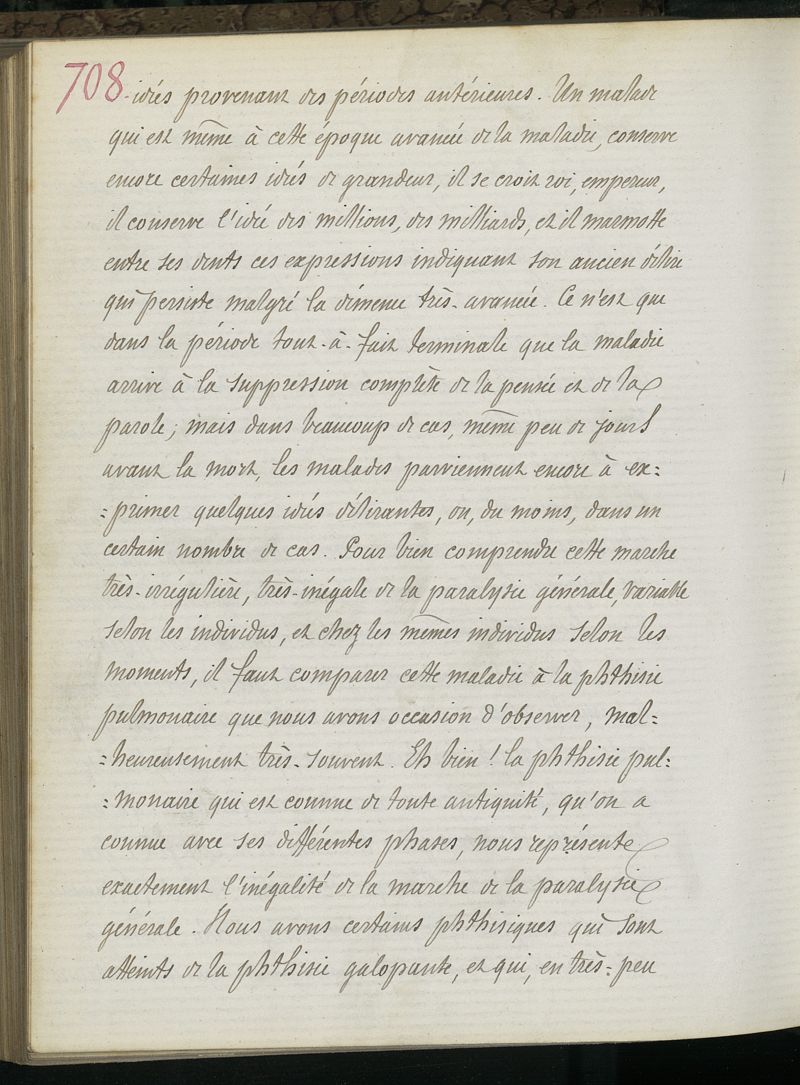 708
idées provenant des périodes antérieures. Un malade
qui est même à cette époque avancée de la maladie, conserve
encore certaines idées de grandeur, il se croit roi, empereur,
il conserve l'idée des millions, des milliards, et il marmotte
entre ses dents ces expressions indiquant son ancien délire
qui persiste malgré la démence très-avancée. Ce n'est que
dans la période tout-à-fait terminale que la maladie
arrive à la suppression complète de la pensée et de la
parole; mais dans beaucoup de cas, même peu de jours
avant la mort, les malades parviennent encore à ex=
=primer quelques idées délirantes, ou, du moins, dans un
certain nombre de cas. Pour bien comprendre cette marche
très-irrégulière, très-inégale de la paralysie générale, variable
selon les individus, et chez les mêmes individus selon les
moments, il faut comparer cette maladie à la phthisie
pulmonaire que nous avons occasion d'observer, mal=
=heureusement très-souvent. Eh bien! la phthisie pul=
=monaire qui est connue de toute antiquité, qu'on a
connue avec ses différentes phases, nous représente
exactement l'inégalité de la marche de la paralysie
générale. Nous avons certains phthisiques qui sont
atteints de la phthisie galopante, et qui, en très=peu